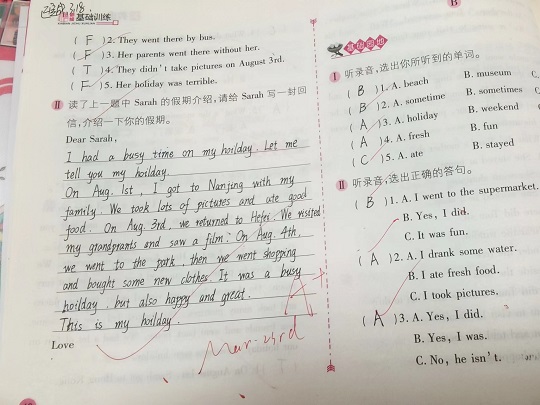 基础训练
( F ) 2. They went there by bus.
( F ) 3. Her parents went there without her.
( T ) 4. They didn't take pictures on August 3rd.
( F ) 5. Her holiday was terrible.
Ⅱ 读了上一题中 Sarah 的假期介绍,请给 Sarah 写一封回
信,介绍一下你的假期。
Dear Sarah,
I had a busy time on my hoilday. Let me
tell you my hoilday.
On Aug. 1st, I got to Nanjing with my
family. We took lots of pictures and ate good
food. On Aug. 3rd, we returned to Hefei. We visited
my grandprants and saw a film. On Aug. 4th,
we went to the park, then we went shopping
and bought some new clothes. It was a busy
hoilday, but also happy and great.
This is my hoilday.
Love
A+
Mar. 23rd
B
基础园地
Ⅰ 听录音,选出你所听到的单词。
( B ) 1. A. beach B. museum C.
( B ) 2. A. sometime B. sometimes C.
( A ) 3. A. holiday B. weekend
( A ) 4. A. fresh B. fun
( C ) 5. A. ate B. stayed
Ⅱ 听录音,选出正确的答句。
( B ) 1. A. I went to the supermarket.
B. Yes, I did.
C. It was fun.
( A ) 2. A. I drank some water.
B. I ate fresh food.
C. I took pictures.
( A ) 3. A. Yes, I did.
B. Yes, I was.
C. No, he isn't.